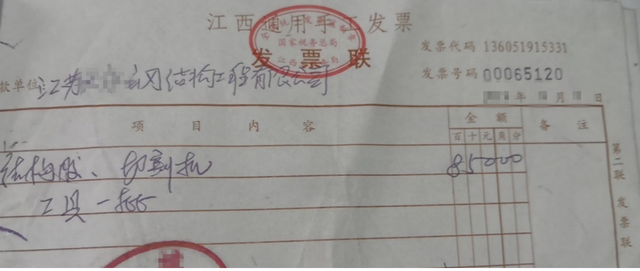 江西通用手工发票
国家税务总局
发票联
发票代码 136051915331
发票号码 00065120
款单位: 江苏 钢结构工程有限公司
年 月 日
项目内容 金额 备注
百 十 元 角 分
结构胶、切割机 85000
工具一批
第二联 发票联